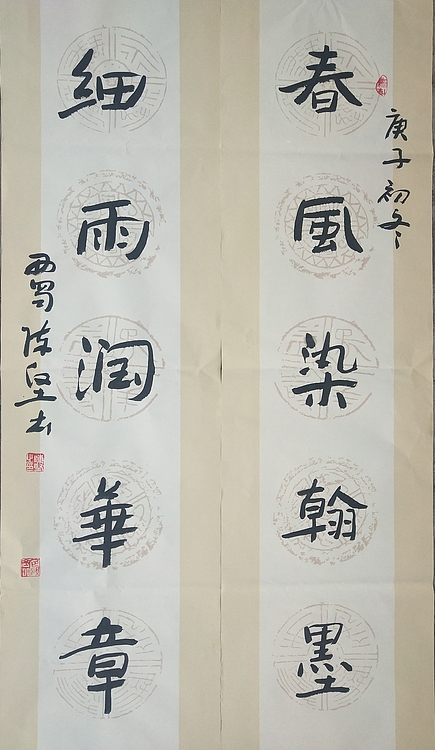 庚子初冬
春風染翰墨
细雨润華章
西蜀陈坚书